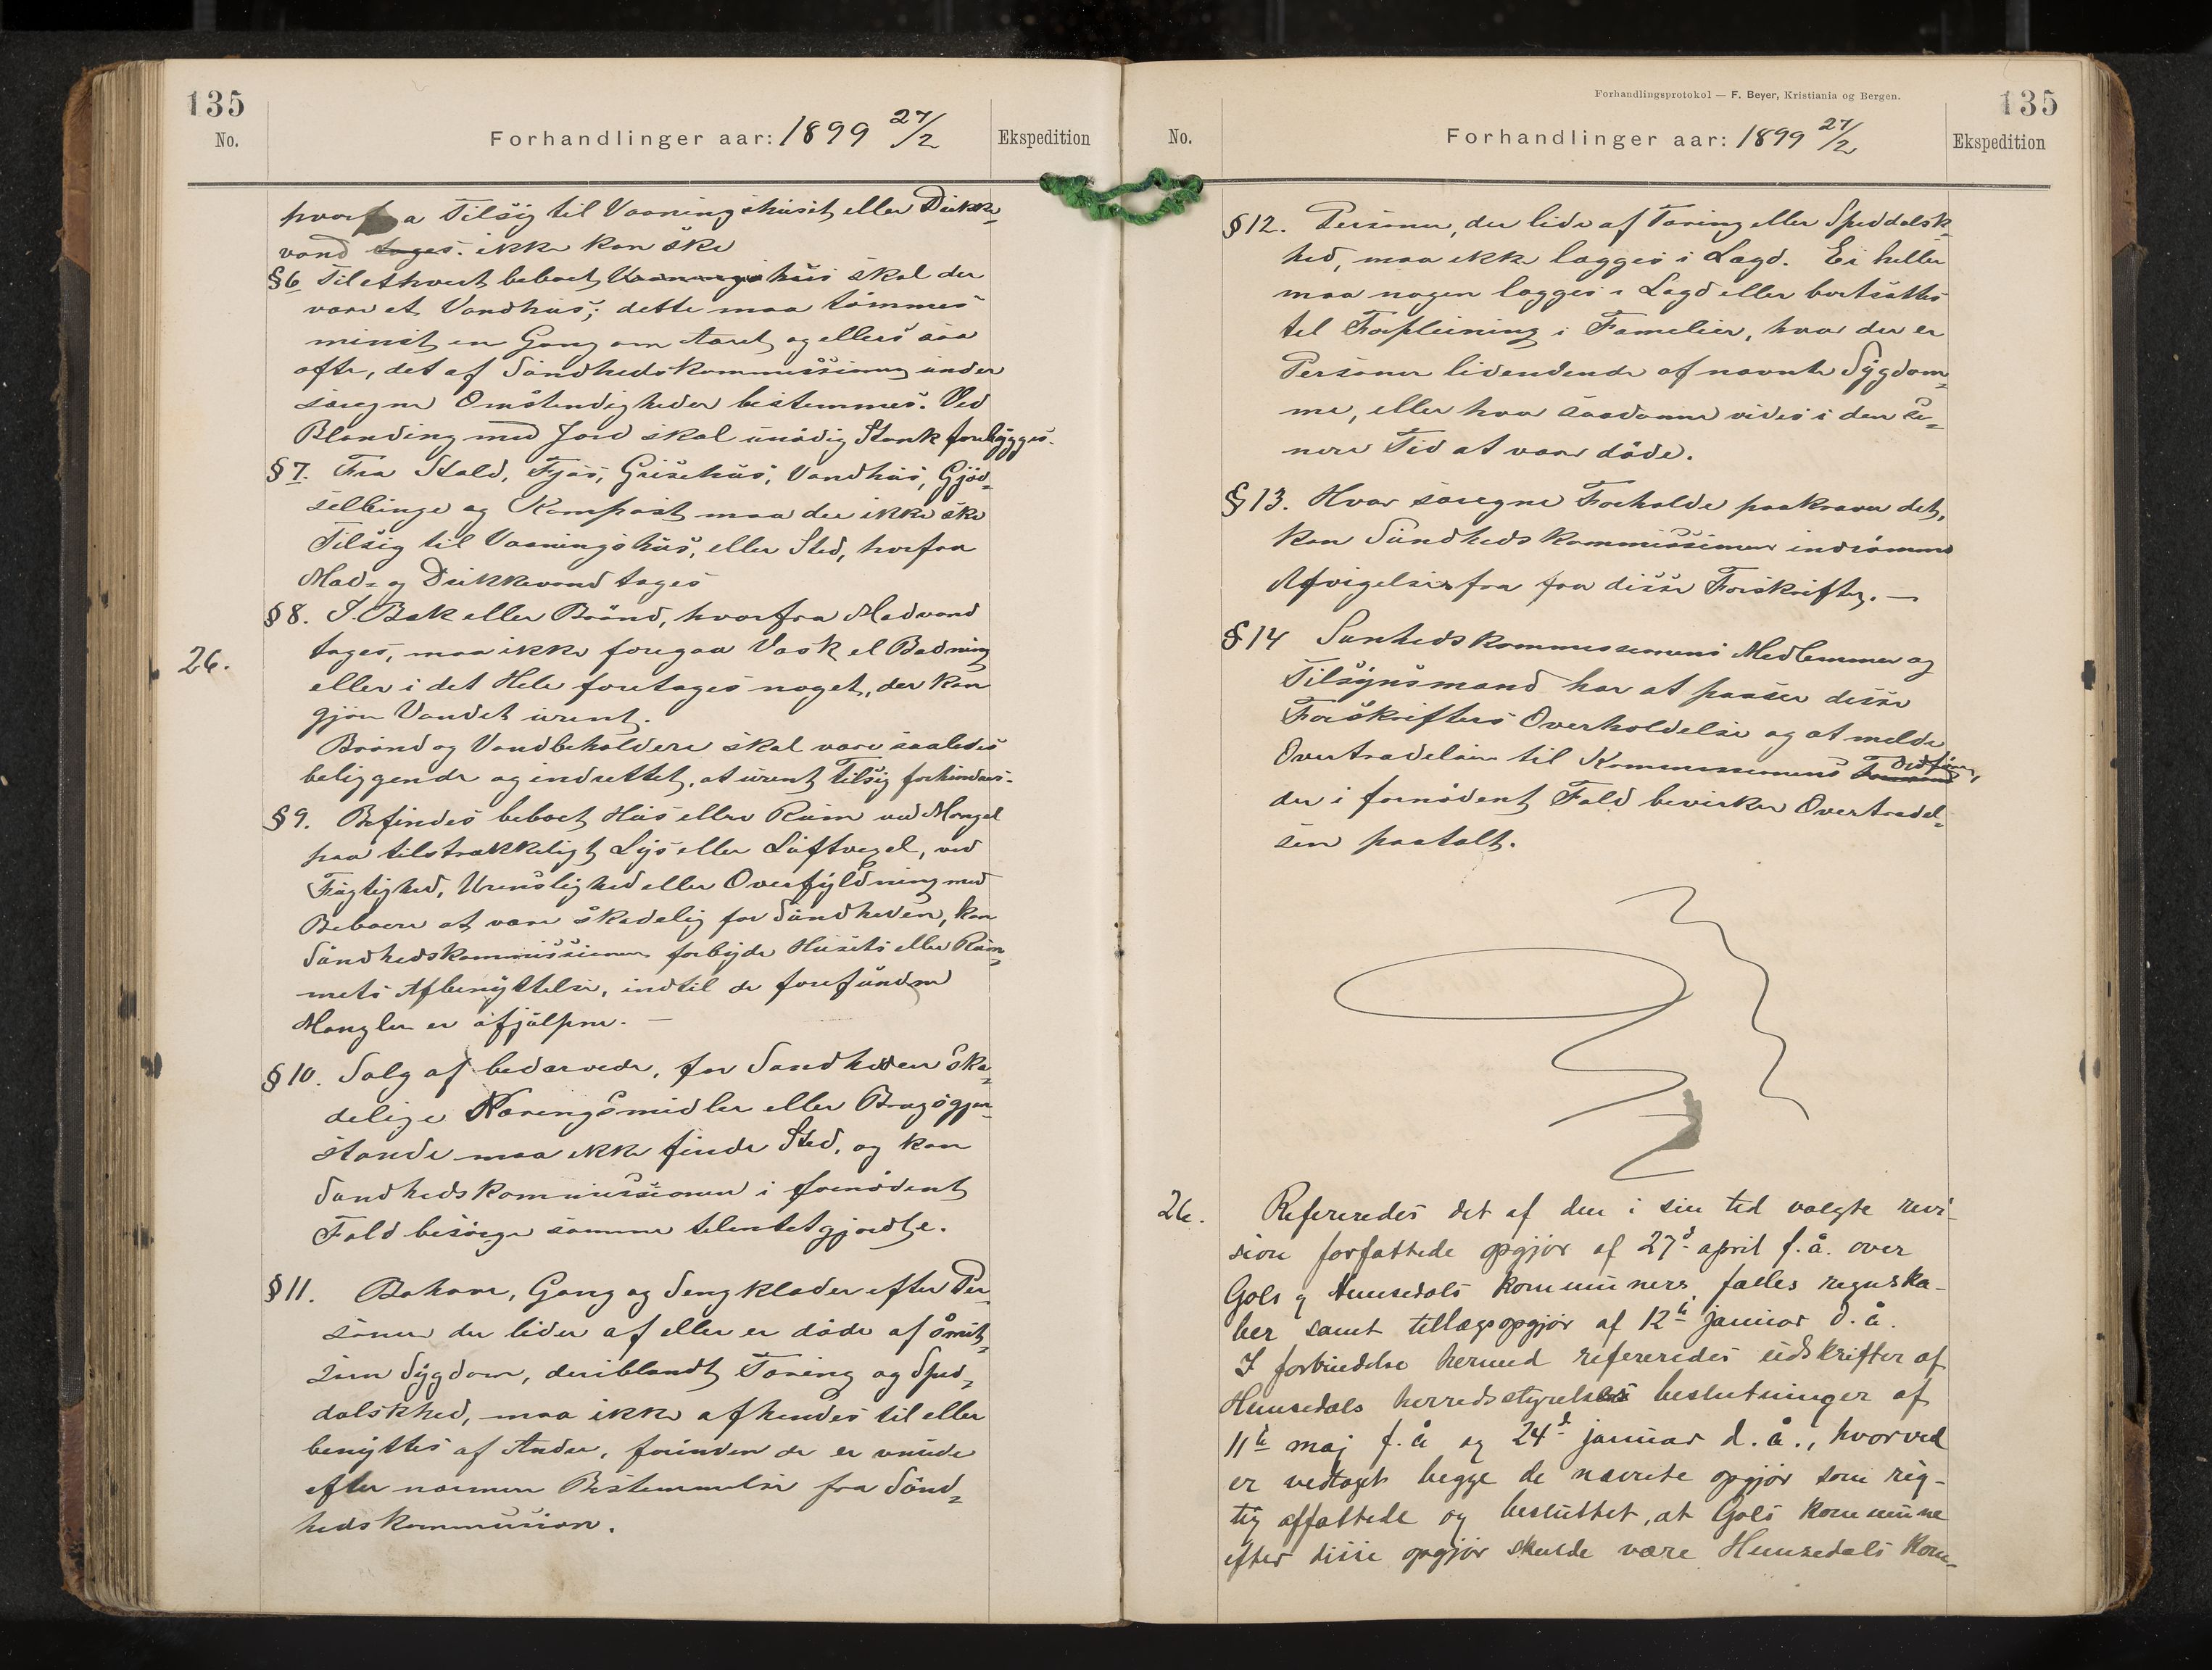 135
No.
Forhandlinger aar: 1899 27/2
Ekspedition
hvorfra Tilsig til Vaaningshuset eller Drikke-
vand tages. ikke kan ske
§6 Til ethvert beboet Vaaningshus skal der
være et Vandhus; dette maa tømmes
minst en Gang om Aaret og ellers saa
ofte, det af Sundhedskommissionen under
særegne Omstendigheder bestemmes. Ved
Blanding med Jord skal unødig Stank forebygges.
§7. Fra Stald, Fjøs, Grisehus, Vandhus, Gjød-
selbinge og Kompost maa der ikke ske
Tilsig til Vaaningshus, eller Sted, hvorfra
Mad- og Drikkevand tages
§8. I Bæk eller Brønd, hvorfra Madvand
26.
tages, maa ikke foregaa Vask el Badning
eller i det Hele foretages noget, der kan
gjøre Vandet urent.
Brønd og Vandbeholdere skal være saaledes
beliggende og indrettet, at urent Tilsig forhindres.
§9. Befindes beboet Hus eller Rum ved Mangel
paa tilstrækkeligt Lys eller Luftvegel, ved
Fugtighed, Urenslighed eller Overfyldning med
Beboere at være skadelig for Sundheden, kan
Sundhedskommissionen forbyde Husets eller Rum-
mets Afbenyttelse, indtil de forefundne
Mangler er afhjulpne. —
§10. Salg af bedærvede, for Sundheden ska-
delige Næringsmidler eller Brugsgjen-
stande maa ikke finde Sted, og kan
Sundhedskommissionen i fornødent
Fald besørge samme tilintetgjordte.
§11. Bohave, Gang og Sengklæder efter Per-
soner der lider af eller er døde af smit-
som Sygdom, deriblandt Tæring og Sped-
dalskhed, maa ikke afhendes til eller
benyttes af Andre, forinden de er rensede
efter nærmere Bestemmelse fra Sund-
hedskommission.
Forhandlingsprotokol — F. Beyer, Kristiania og Bergen.
135
No.
Forhandlinger aar: 1899 27/2
Ekspedition
§12. Personer, der lide af Tæring eller Speddalsk-
hed, maa ikke lægges i Lægd. Ei heller
maa nogen lægges i Lægd eller bortsættes
til Forpleining i Familier, hvor der er
Personer lidendende af nævnte Sygdom-
me, eller hvor saadanne vides i den se-
nere Tid at være døde.
§13. Hvor særegne Forholde paakræver det,
kan Sundhedskommissionen indrømme
Afvigelser fra fra disse Forskrifter. —
§14 Sunhedskommissionens Medlemmer og
Tilsynsmænd har at paase disse
Forskrifters Overholdelse og at melde
Overtrædelsen til Kommissionens Ordfører,
der i fornødent Fald bevirker Overtrædel-
sen paatalt.
26.
Refereredes det af den i sin tid valgte revi-
sion forfattede opgjør af 27d april f.å. over
Gols og Hemsedals kommuners fælles regnska-
ber samt tillægsopgjør af 12te januar d.å.
I forbindelse hermed refereredes udskrifter af
Hemsedals herredsstyrelses beslutninger af
11te maj f.å og 24d januar d.å., hvorved
er vedtaget begge de nævnte opgjør som rig-
tig affattede og besluttet, at Gols kommune
efter disse opgjør skulde være Hemsedals kom-